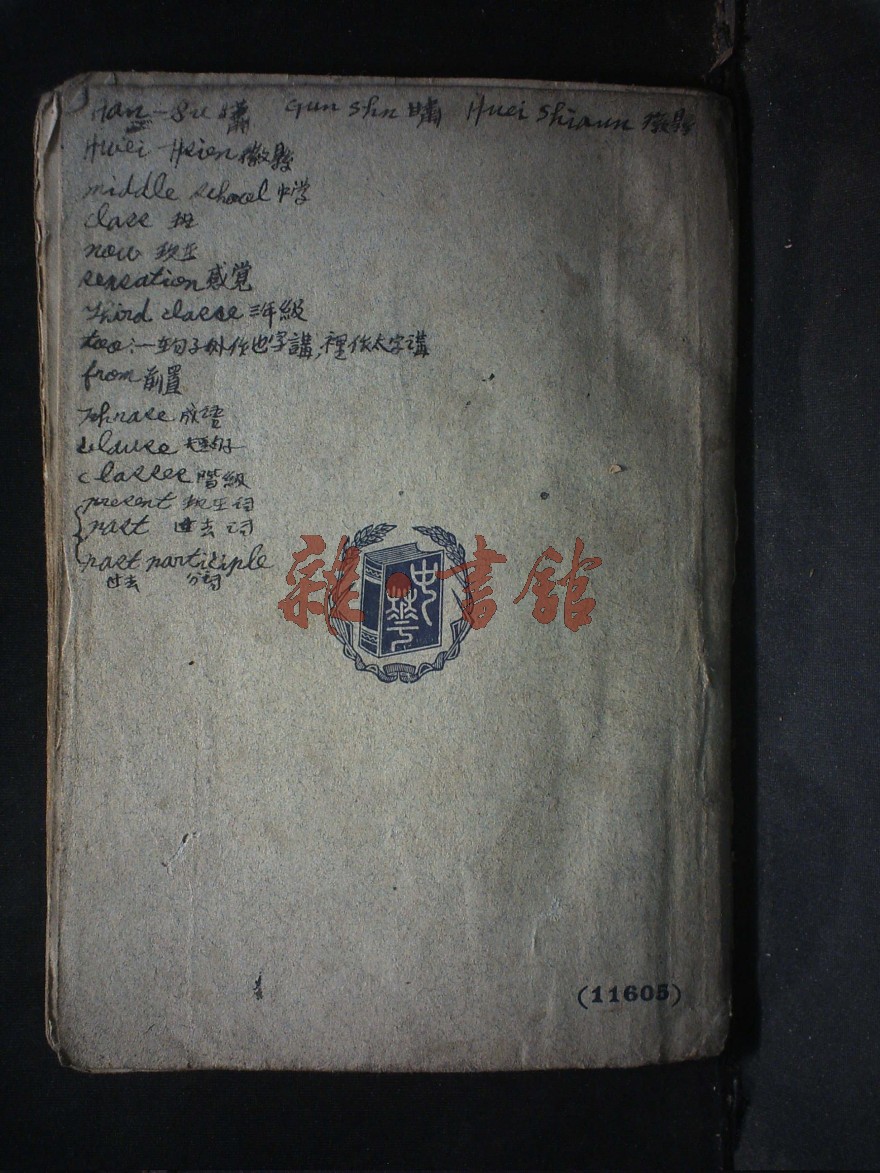 Han-Su
Huei Shiaun 徽縣
Hwei-Hsien 徽縣
middle school 中学
class 班
now 現在
sensation 感覚
third classe 三年級
too:一在句子外作也字講,裡作太字講
from 前置
Phrase 成語
clause 短句子
classes 階級
present 現在词
past 过去词
past participle
过去 分詞
雜·書館
中華
(11605)